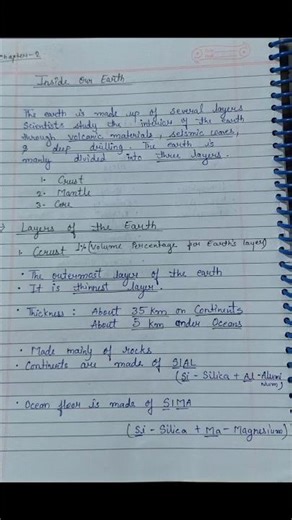 Chapter-2
Inside Our Earth
The earth is made up of several layers
Scientists study the interior of the earth
through volcanic materials, seismic waves,
& deep drilling. The earth is
mainly divided into three layers.
1- Crust
2- Mantle
3- Core
Layers of the Earth
1. Crust 1%(Volume Percentage for Earth's layer)
• The outermost layer of the earth
• It is thinnest layer.
• Thickness : About 35 Km on Continents
About 5 km under Oceans
• Made mainly of rocks
• Continents are made of SIAL
(Si - Silica + Al - Alumi
nium)
• Ocean floor is made of SIMA
(Si - Silica + Ma - Magnesium)